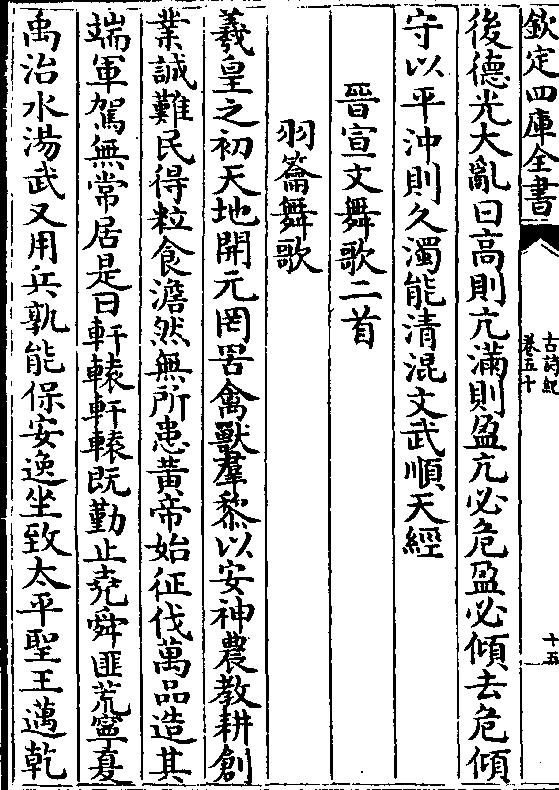 欽定四庫全書
古詩紀
卷五十
十五
後德光大亂曰高則亢滿則盈亢必危盈必傾去危傾
守以平沖則久濁能清混文武順天經
晉宣文舞歌二首
羽籥舞歌
羲皇之初天地開元罔罟禽獸羣黎以安神農教耕創
業誠難民得粒食澹然無所患黃帝始征伐萬品造其
端軍駕無常居是曰軒轅軒轅既勤止堯舜匪荒寧夏
禹治水湯武又用兵孰能保安逸坐致太平聖王邁乾